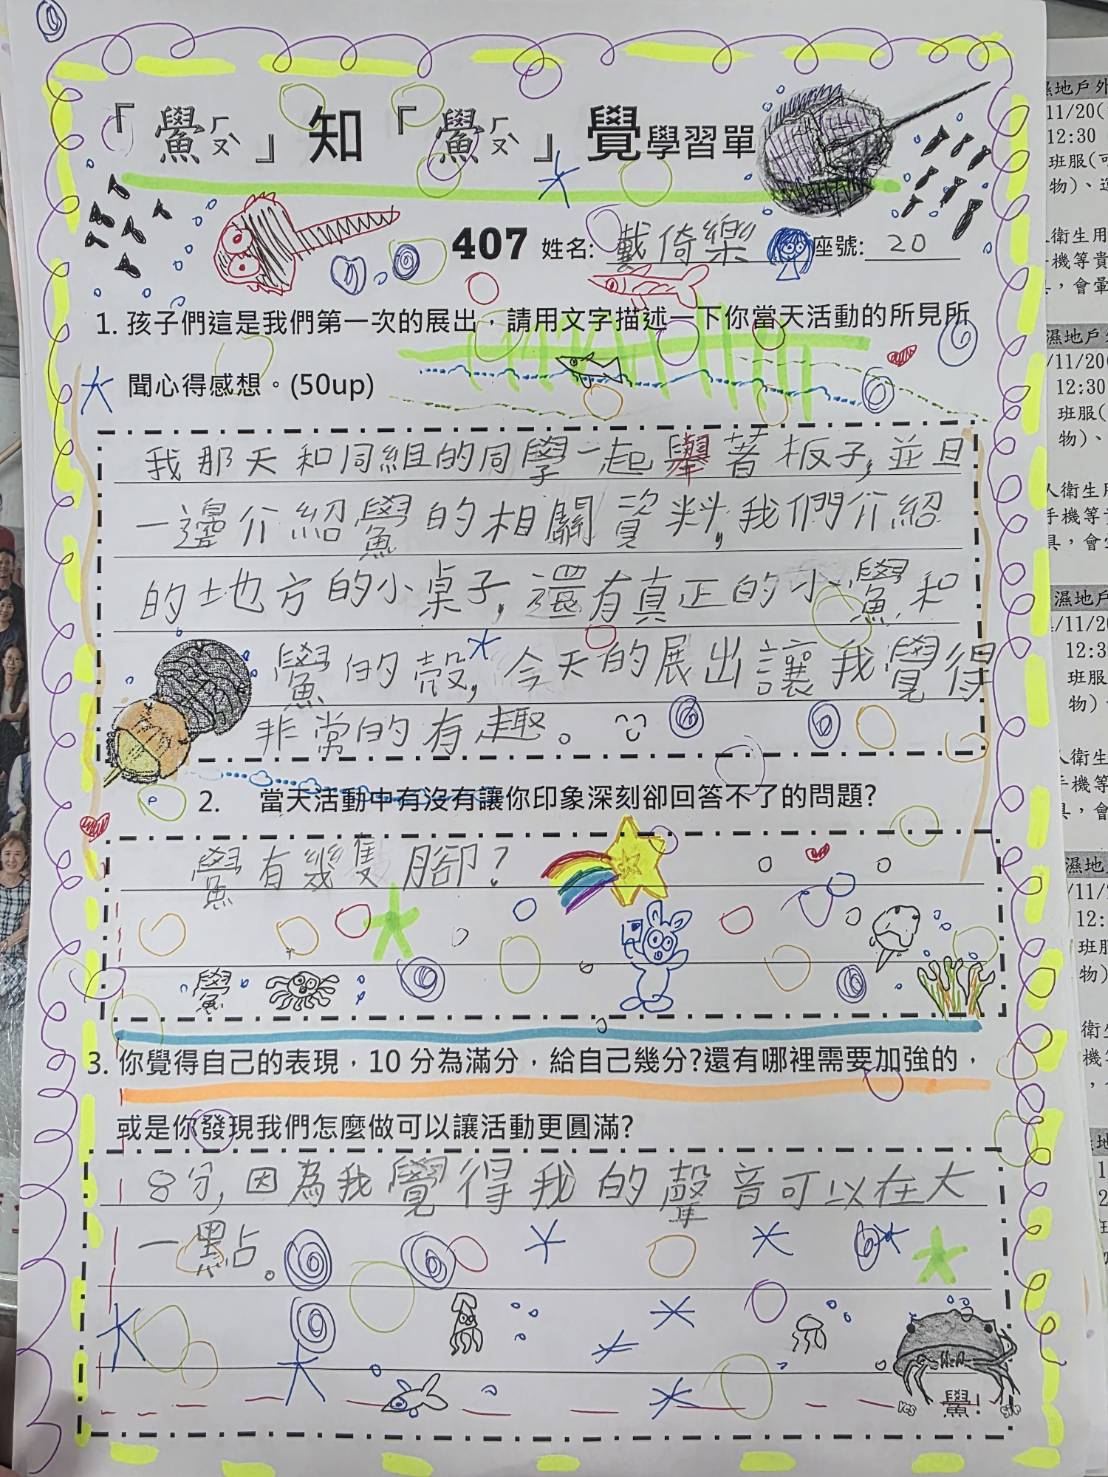 「鱟ㄏㄡˋ」知「鱟ㄏㄡˋ」覺學習單
407 姓名: 戴倚樂 座號: 20
1. 孩子們這是我們第一次的展出，請用文字描述一下你當天活動的所見所
聞心得感想。(50up)
我那天和同組的同學一起舉著板子,並且
一邊介紹鱟的相關資料,我們介紹
的地方的小桌子,還有真正的小鱟和
鱟的殼,今天的展出讓我覺得
非常的有趣。
2. 當天活動中有沒有讓你印象深刻卻回答不了的問題?
鱟有幾隻腳?
鱟
3. 你覺得自己的表現，10 分為滿分，給自己幾分?還有哪裡需要加強的，
或是你發現我們怎麼做可以讓活動更圓滿?
8分,因為我覺得我的聲音可以在大
一點。
鱟!
濕地戶外
11/20(
12:30
班服(可
物)、
衛生用
機等貴
，會暈
濕地戶外
/11/20(
12:30
班服(
物)、
人衛生用
手機等
具，會
濕地戶
/11/20
12:3
班服
物)
人衛生
機等
，會
濕地
/11/
12:
班服
物)
衛生
機